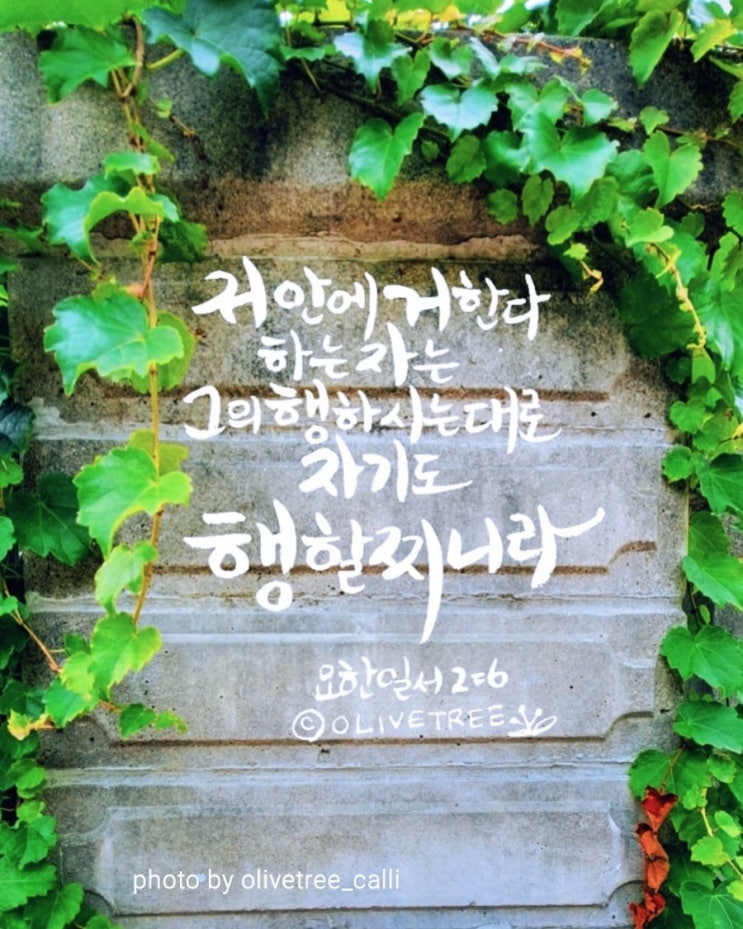 저 안에 거한다
하는 자는
그의 행하시는대로
자기도
행할찌니라
요한일서 2:6
© OLIVETREE
photo by olivetree_calli